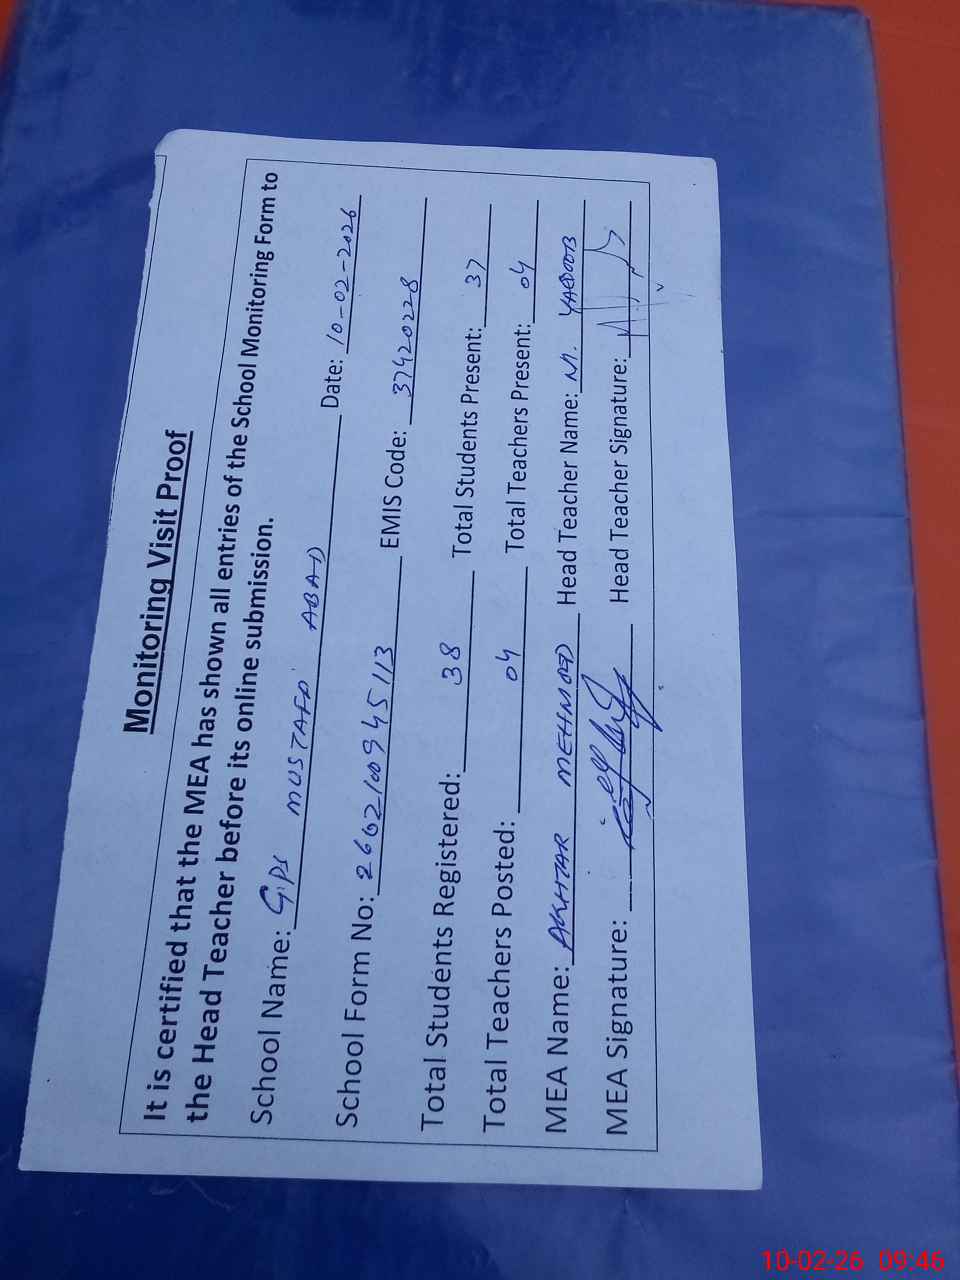 Monitoring Visit Proof
It is certified that the MEA has shown all entries of the School Monitoring Form to
the Head Teacher before its online submission.
School Name: GPS MUSTAFA ABAD Date: 10-02-2026
School Form No: 2602100945113 EMIS Code: 37420228
Total Students Registered: 38 Total Students Present: 37
Total Teachers Posted: 04 Total Teachers Present: 04
MEA Name: AKHTAR MEHMOOD Head Teacher Name: M. YAQOOB
MEA Signature: Head Teacher Signature:
10-02-26 09:46